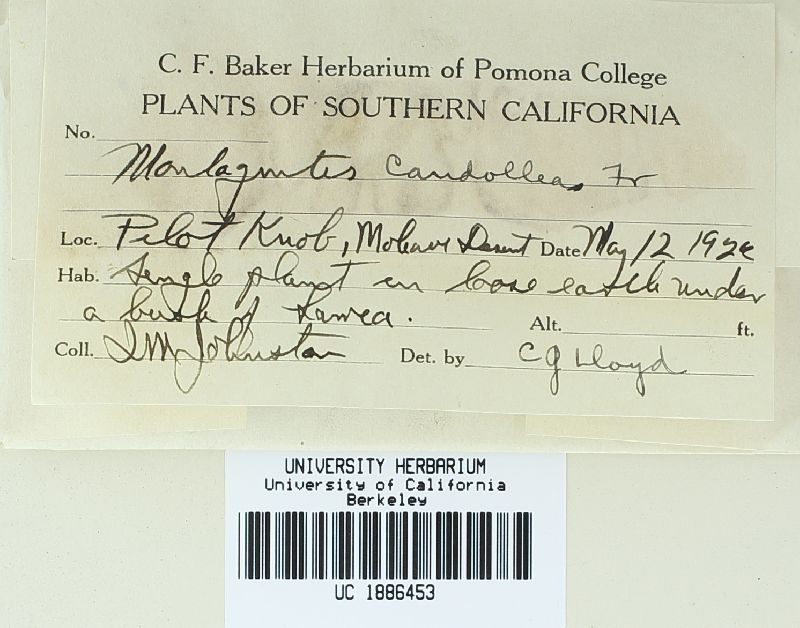 C. F. Baker Herbarium of Pomona College
PLANTS OF SOUTHERN CALIFORNIA
No.
Montagnites Candollea, Fr
Loc. Pilot Knob, Mohave Desert Date May 12
Hab. Single plant in loose earth under
a bush of Larrea.
Alt. ft.
Coll. I M Johnston Det. by C G Lloyd
UNIVERSITY HERBARIUM
University of California
Berkeley
UC 1886453